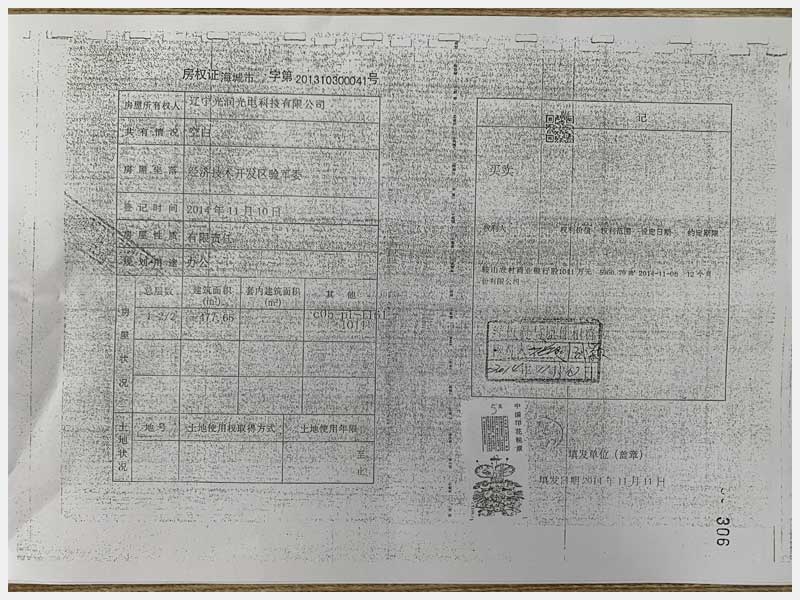 房权证 海城市 字第 201310300041号
房屋所有权人 辽宁光润光电科技有限公司
共有情况 空白
房屋坐落 经济技术开发区验军委
登记时间 2014年11月10日
房屋性质 有限责任
规划用途 办公
房屋状况
总层数 建筑面积(㎡) 套内建筑面积(㎡) 其他
1-2/2 477.66
土地状况
地号 土地使用权取得方式 土地使用年限
至
止
记
买卖
权利人 权利价值 权利范围 设定日期 约定期限
鞍山农村商业银行股 1041万元 2014-11-06 12个月
份有限公司
中国印花税票
填发单位（盖章）
填发日期 2014年11月11日
306